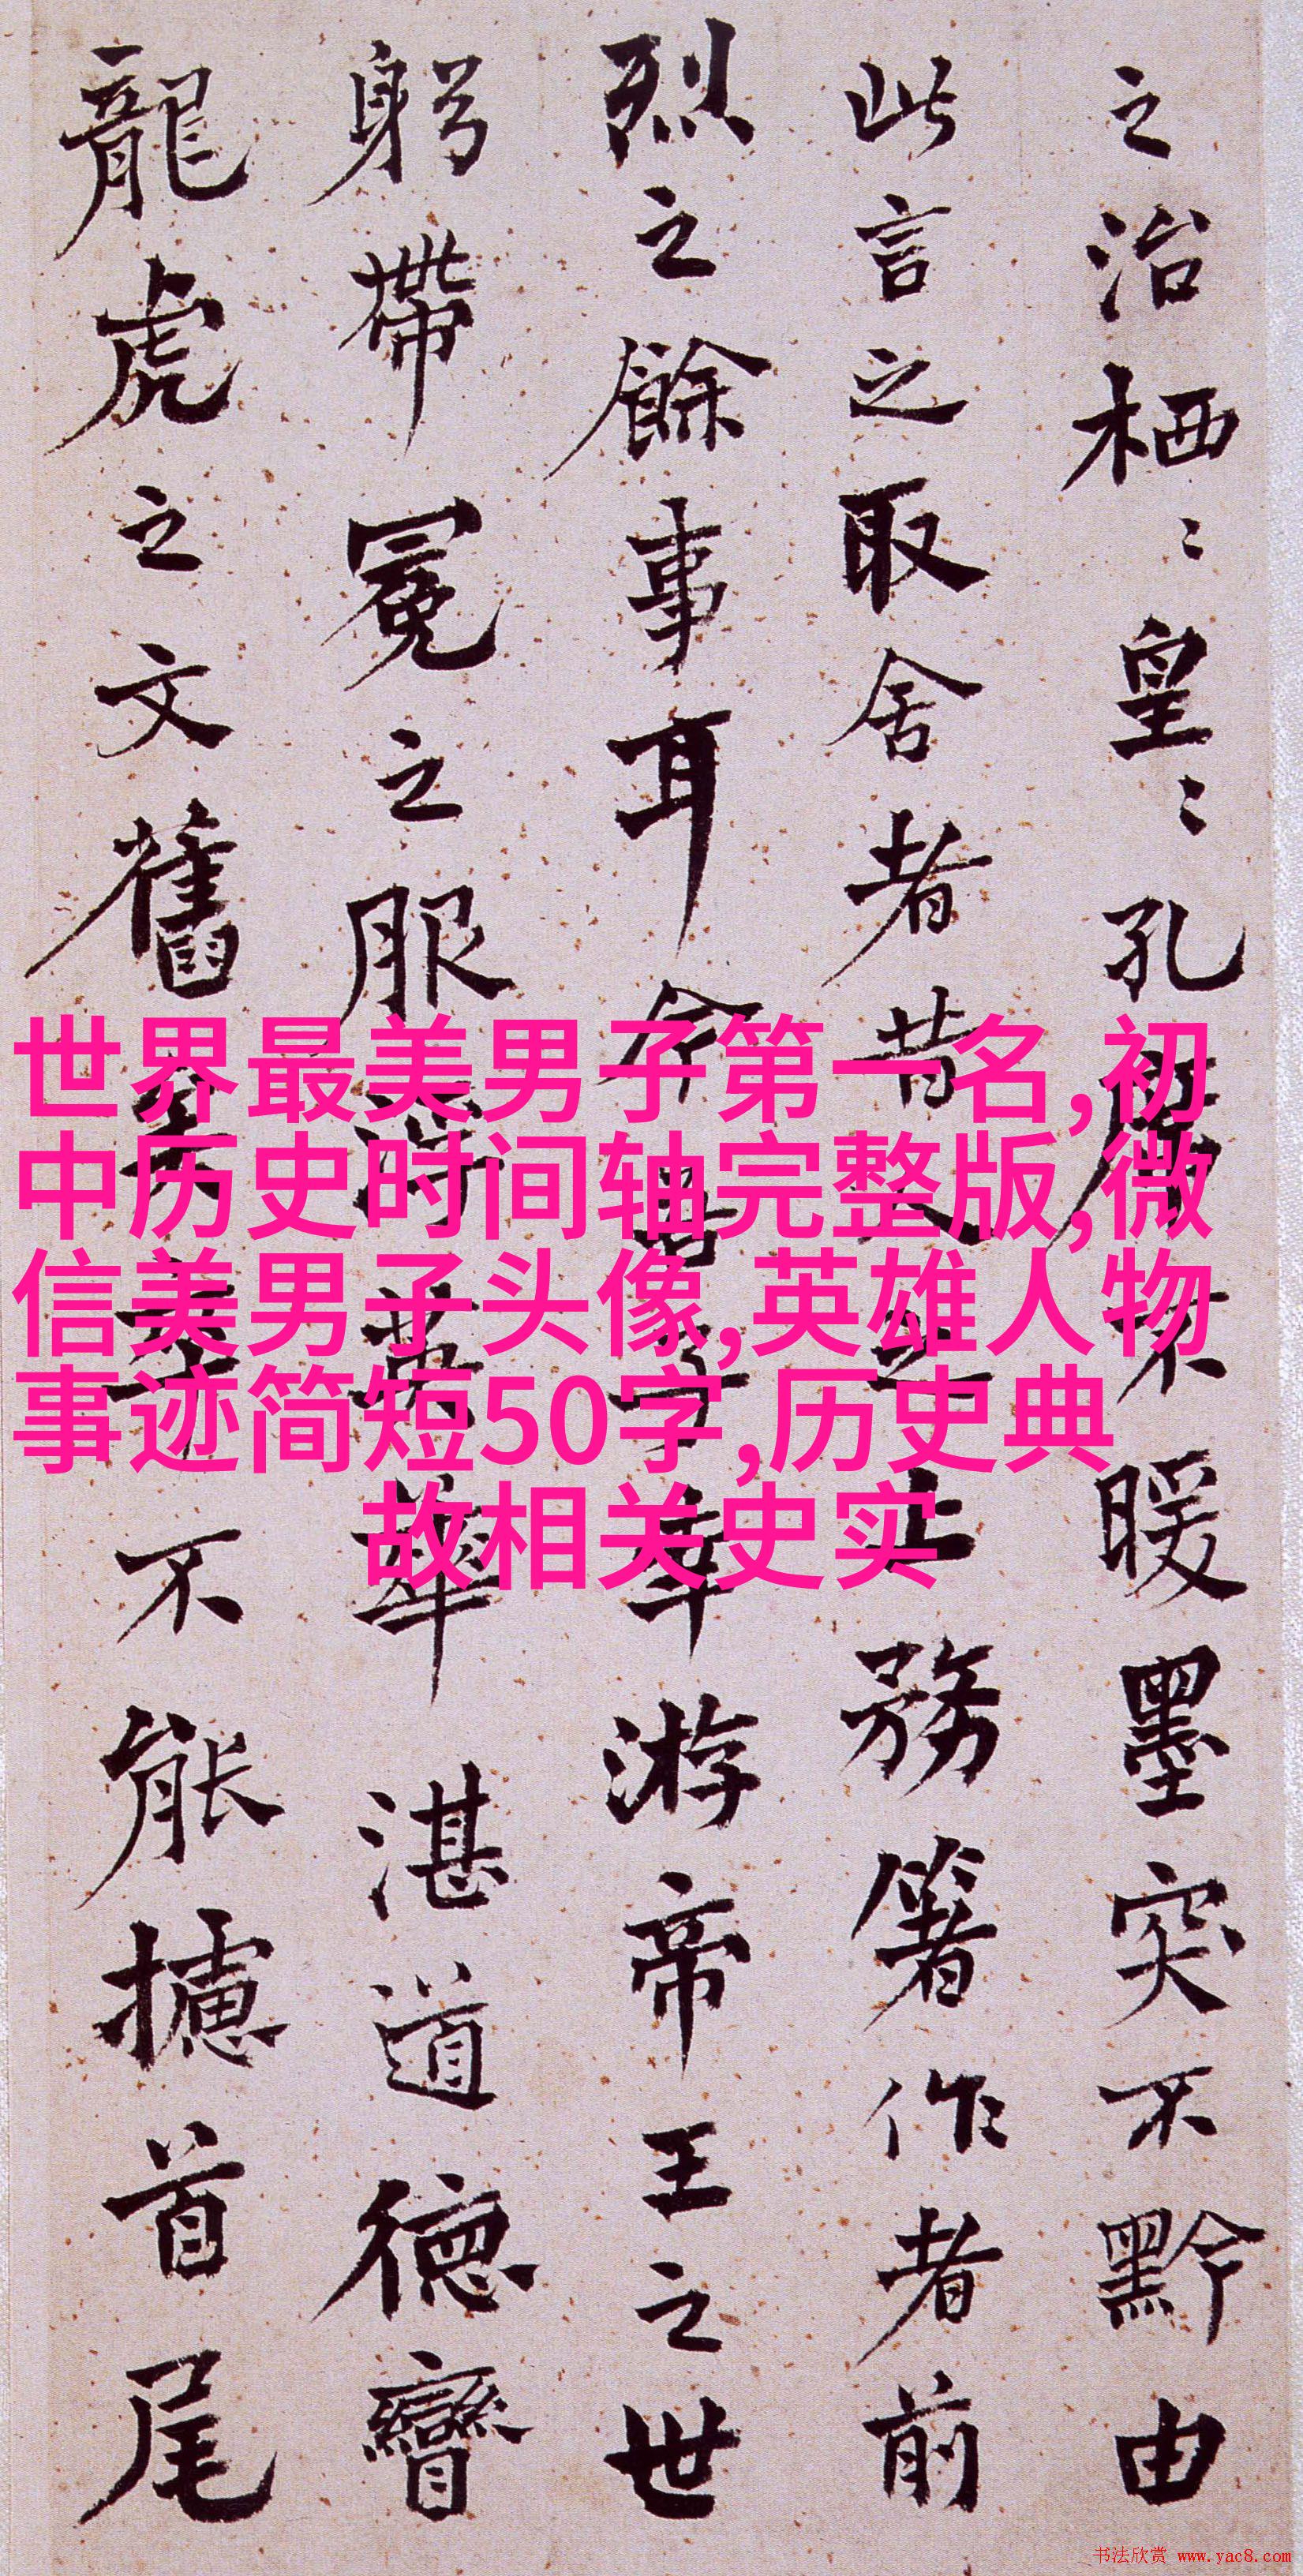 之治栖〻皇〻孔席不暖墨突不黔由
此言之取舍者昔人之上務著作者前
烈之餘事耳今吾子幸游帝王之世
躬帶冕之服浮英華湛道德矕
龍虎之文舊矣不能攄首尾
世界最美男子第一名,初
中历史时间轴完整版,微
信美男子头像,英雄人物
事迹简短50字,历史典
故相关史实
书法欣赏 www.yac8.com